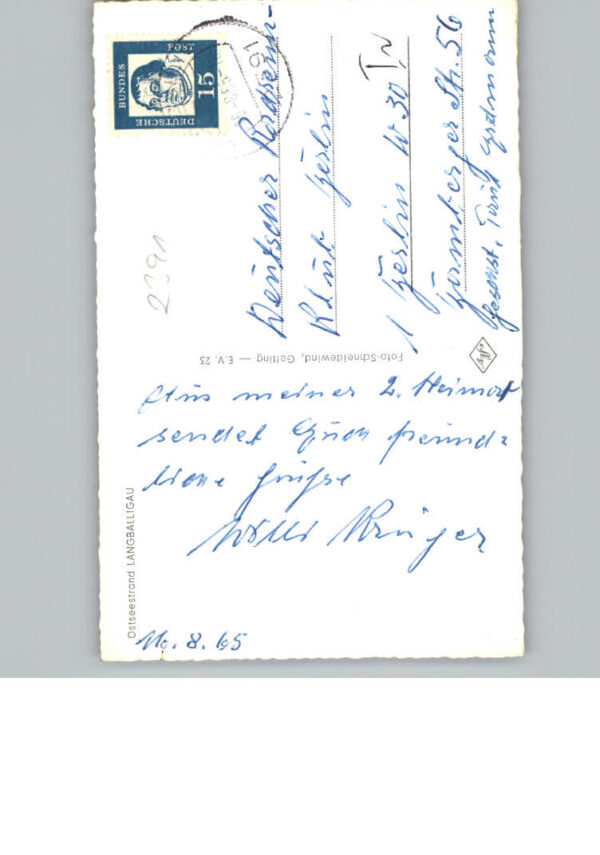 Ostseestrand LANGBALLIGAU
Aus meiner 2. Heimat
sendet Euch freund=
liche Grüße
Willi Krüger
16.8.65
Foto-Schneidewind, Gelting — E.V. 23
Agfa
DEUTSCHE
BUNDES
POST
15
2391
Deutscher
Klub Berlin
1 Berlin W 30
Nürnberger Str. 56